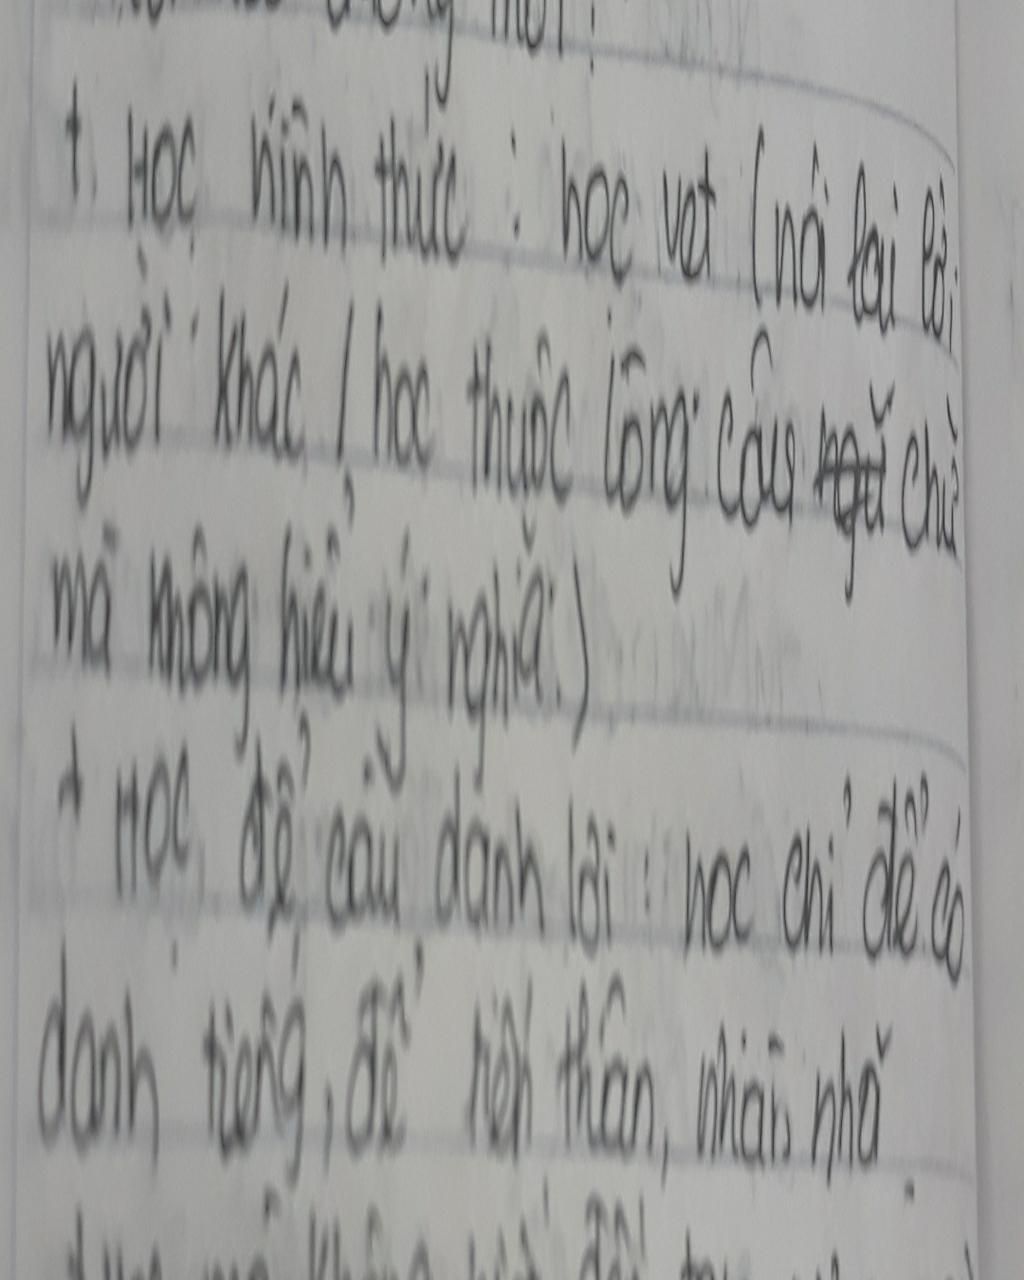 + Học hình thức : học vẹt (nói lại lời
người khác / học thuộc lòng câu chữ
mà không hiểu ý nghĩa.)
+ Học để cầu danh lợi : học chỉ để có
danh tiếng, để tiến thân, nhàn nhã
mà không